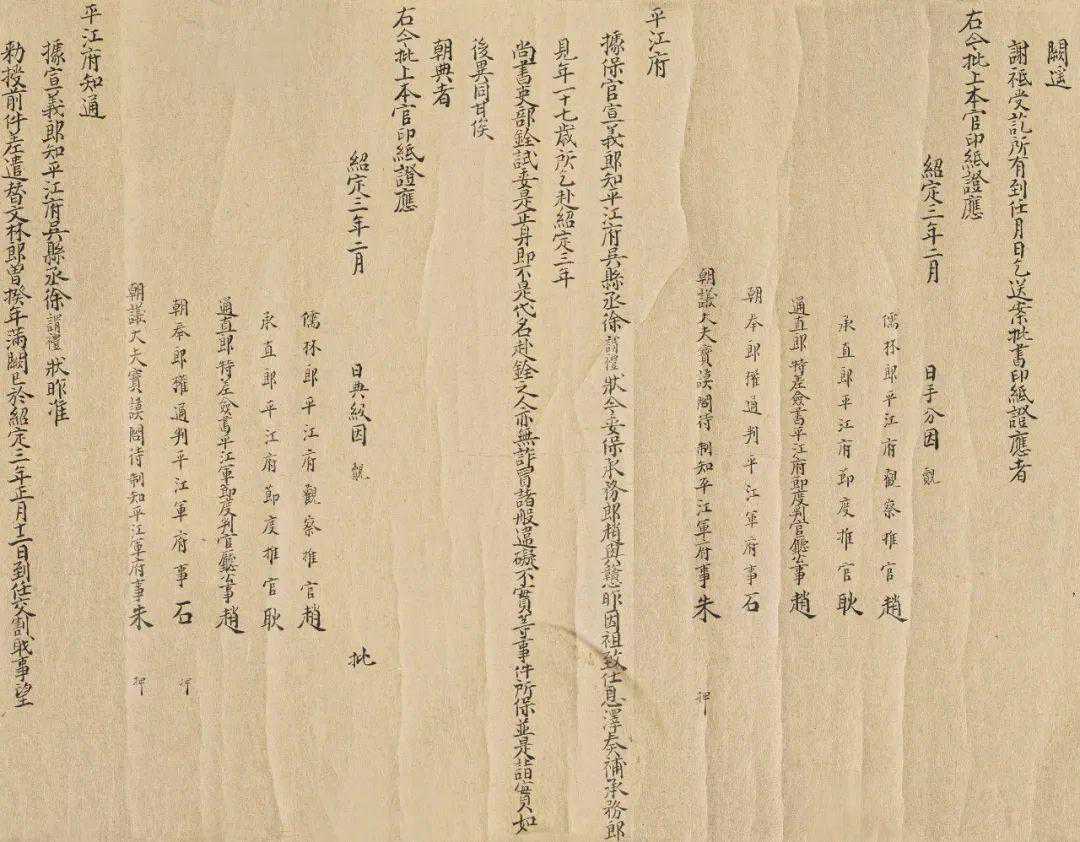 闕遥
謝祗受訖所有到任月日乞送案批書印紙證應者
右今批上本官印紙證應
紹定三年二月　日手分因　觀
儒林郎平江府觀察推官趙
承直郎平江府節度推官耿
通直郎特差僉書平江府節度判官廳公事趙
朝奉郎權通判平江軍府事石
朝議大夫寶謨閣待制知平江軍府事朱　押
平江府
據保官宣義郎知平江府吳縣丞徐謂禮狀今委保承務郎趙與憓昨因祖致仕恩澤奏補承務郎
見年一十七歲所乞赴紹定三年
尚書吏部銓試委是正身即不是代名赴銓之人亦無詐冒諸般違礙不實等事件所保並是詣實如
後異同甘俟
朝典者
右今批上本官印紙證應
紹定三年二月　日典級因　觀　批
儒林郎平江府觀察推官趙
承直郎平江府節度推官耿
通直郎特差僉書平江軍節度判官廳公事趙
朝奉郎權通判平江軍府事石　押
朝議大夫寶謨閣待制知平江軍府事朱　押
平江府知通
據宣義郎知平江府吳縣丞徐謂禮狀昨准
勅授前件差遣替文林郎曾揆年滿闕已於紹定三年正月十二日到任交割職事望